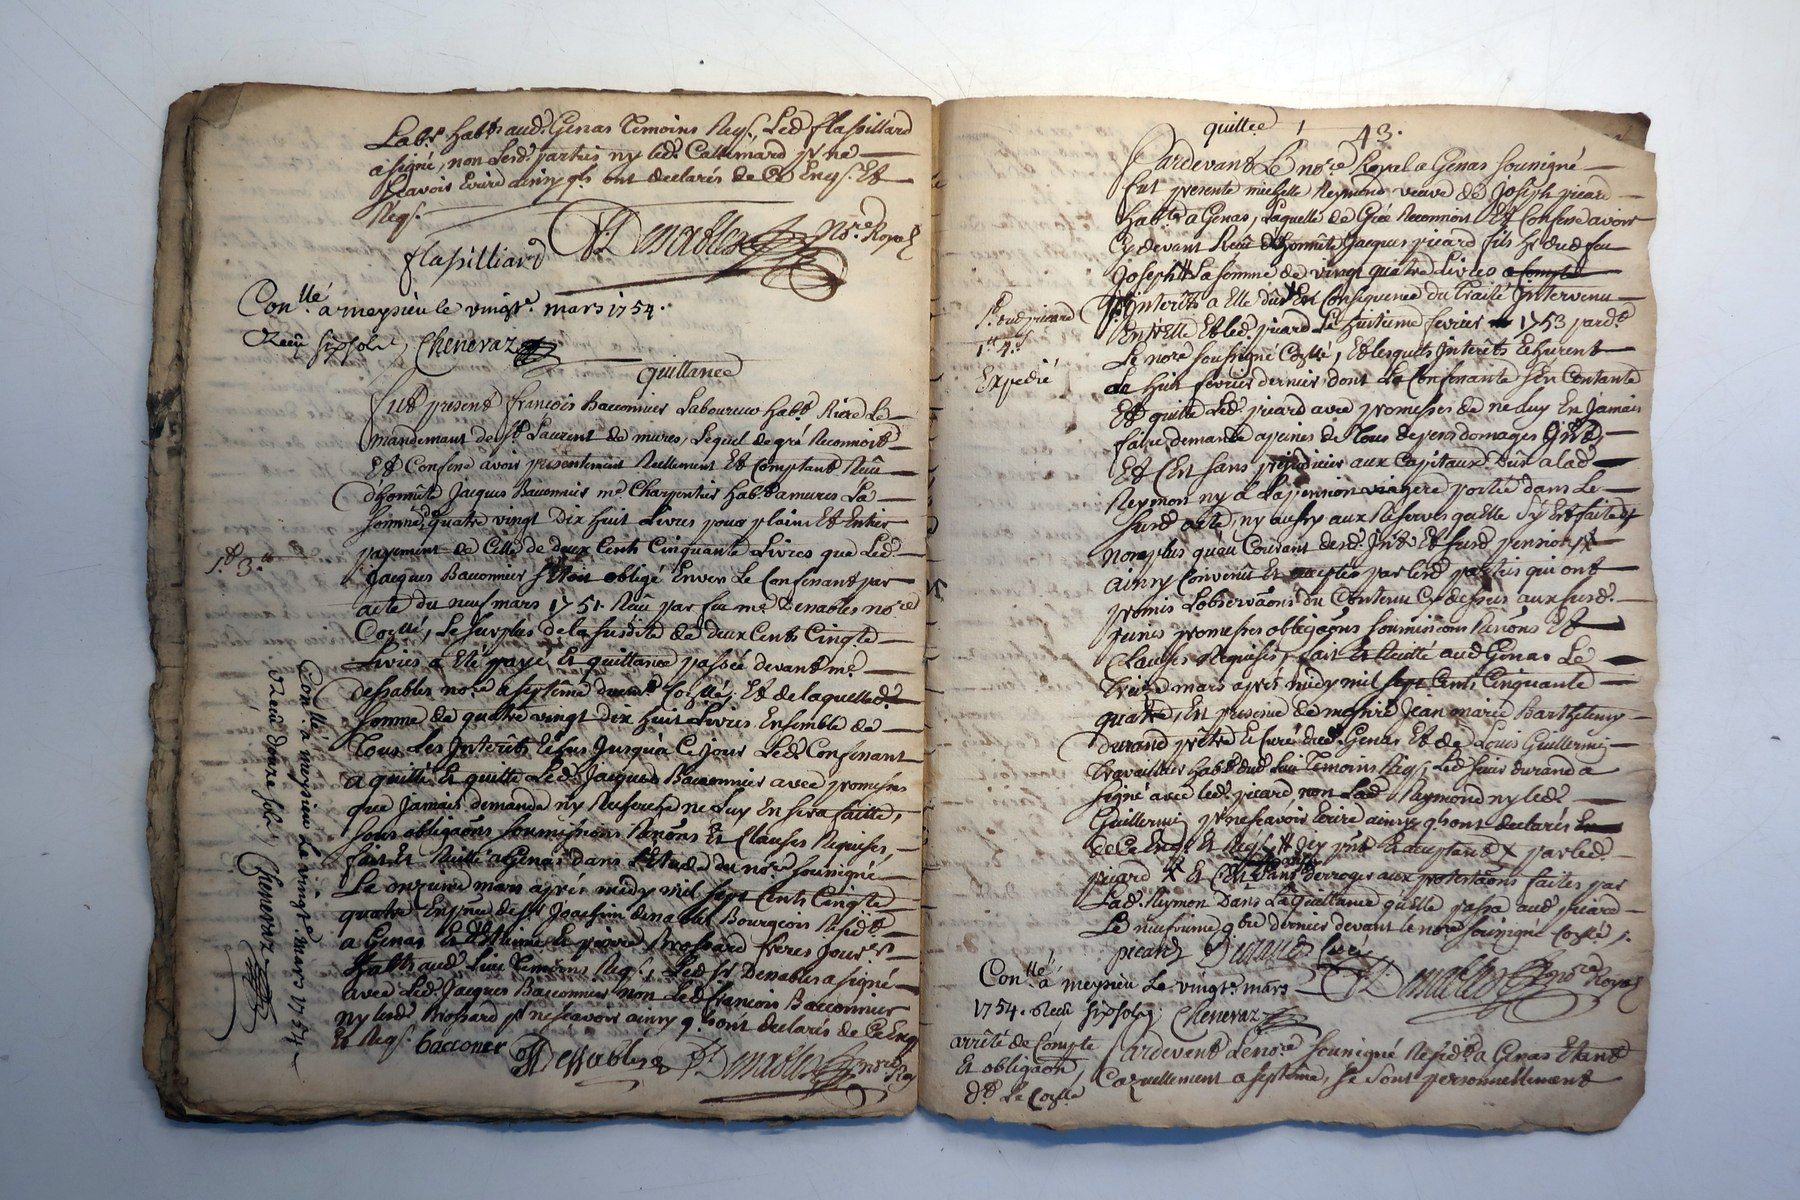 Labr. habt. aud. Genas temoins Reqs. Led. flassilliard
a signé, non Lesd. parties ny led. Callemard pr ne
scavoir Ecrire ainsy qs. ont declarés de Ce Enqs. Et
Reqs.
flassilliard Nore. Royal
Conllé. a meysieu le vingte. mars 1754.
Receu six sols, Chenevaz
quittance
Fut present francois Bacconnier Laboureur habt. Riere Le
mandement de St Laurent de mures, Lequel de gré Reconnoit
Et Confesse avoir presentement Reellement Et Comptant Receu
d'honnête Jacques Bacconnier me. Charpentier habt. a mures La
Somme de quatre vingt Dix huit Livres pour plain Et Entier
payement de Celle de deux Cents Cinquante Livres que Led.
Jacques Bacconnier s'étoit obligé Envers Le Confessant par
acte du neuf mars 1751. Receu par feu me. Denables nore.
Conllé, Le surplus de la susditte de deux Cents Cinqte.
Livres a été payé, Et quittance passée devant me.
dessables nore. a septême Conllé, Et de laquelle d.
Somme de quatre vingt Dix huit Livres Ensemble de
Tous Les Interêts Echus Jusqu'a Ce jour Led. Confessant
a quitté Et quitte Led. Jacques Bacconnier avec promesses
que Jamais demande n'y Recherche ne Luy En sera faitte,
sous obligaons soumissions Renons. Et Clauses Requises,
fait Et Recité a Genas dans L'Etude du nore. soussigné
Le onzieme mars après midy mil sept Cents Cinqte.
quatre En pnce. de sr. Joachim denables Bourgeois Reside.
a Genas Et d'Etienne Et pierre Brossard freres Jour.
habts. aud. Lieu temoins Reqs., Led. sr. Denables a signé
avec Led. Jacques Bacconnier non Led. francois Bacconnier
ny Lesd. Brossard pr ne scavoir ainsy qs. ont declarés de Ce Enq
Et Reqs. baconer Dessables Denables nore. Roy
1d. 3.
Conllé. a meysieu Le vingte. mars 1754
Receu douze sols, Chenevaz
quittce 1 43.
Pardevant Le nore. Royal a Genas soussigné
fut presente michelle Reymond veuve de Joseph picard
habte. a Genas, Laquelle de Gré Reconnoit Et Confesse avoir
Cy devant Receu d'honnête Jacques picard fils hr. dud. feu
Joseph La somme de vingt quatre Livres a compte
Interêts a Elle dûs En Consequence du Traité Intervenu
Entr'elle Et led. picard Le huitieme fevrier 1753 pardt.
Le nore. soussigné Conllé, Et lesquels Interêts Echurent
Le huit fevrier dernier dont La Confessante s'En Contante
Et quitte Led. picard avec promesses de ne luy En Jamais
faire demande a peines de Tous depens domages Ints.
Et C'Est sans prejudicier aux Capitaux dûs a lad.
Reymon ny a La pension viagere portée dans Le
susd. acte, ny aussy aux Reserves qu'elle s'y Est faite
non plus qu'au Courant desd. Ints. Et susd. pension
ainsy Convenu Et accepté par lesd. parties qui ont
promis L'observaon du Contenu Cy dessus aux susd.
peines promesses obligaons soumissions Renons Et
Clauses Requises, fait Et Recité aud. Genas Le
treize mars après midy mil sept Cents Cinquante
quatre, En presence de messire Jean marie Barthelemy
durand prêtre Et Curé dud. Genas Et de Louis Guillermi
travailleur habt. dud. Lieu Temoins Reqs., Led. sieur durand a
signé avec led. picard non Lad. Raymond ny led.
Guillermi pr ne scavoir Ecrire ainsy qs. ont declarés En
de Ce Enqs. Et Reqs. Icy pnt. Et acceptant par led.
picard Et C'Est sans derroger aux protestaons faites par
Lad. Reymon Dans La quittance qu'elle passa aud. picard
Le neufvieme 9bre dernier devant le nore. soussigné Conllé,
picard Durand Curé
Denables nore. Royal
sr. dud. picard
1d. 4s.
Expedié
Conllé. a meysieu Le vingte. mars
1754. Receu six sols, Chenevaz
arrêté de Compte
Et obligaon,
Pardevant Le nore. soussigné Reside. a Genas Etant
Cazuellement a septême, se sont personnellement